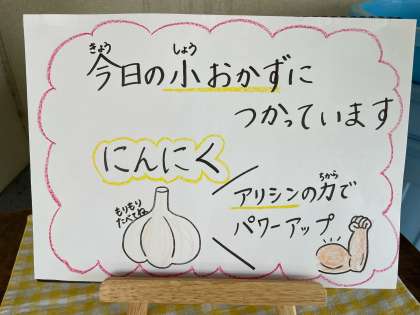 きょう しょう
今日の小おかずに
つかっています
にんにく
もりもり
たべてね
ちから
アリシンの力で
パワーアップ